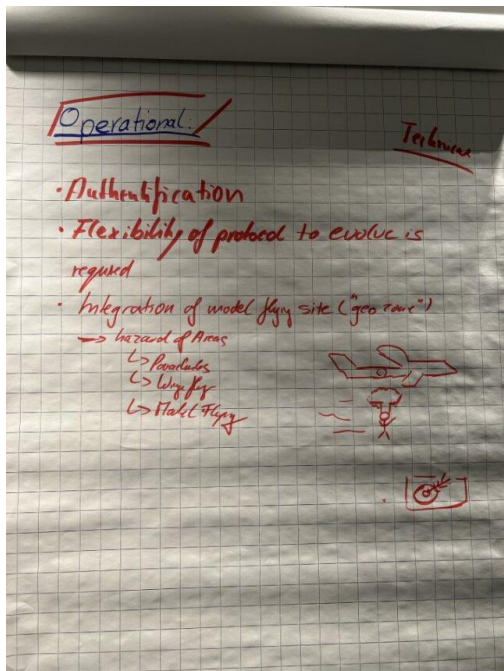 Operational.
Technical
· Authentification
· Flexibility of protocol to evolve is
requred
· Integration of model flying site ("geo zone")
→ hazard of Areas
↳ Parachutes
↳
↳ Model Flying